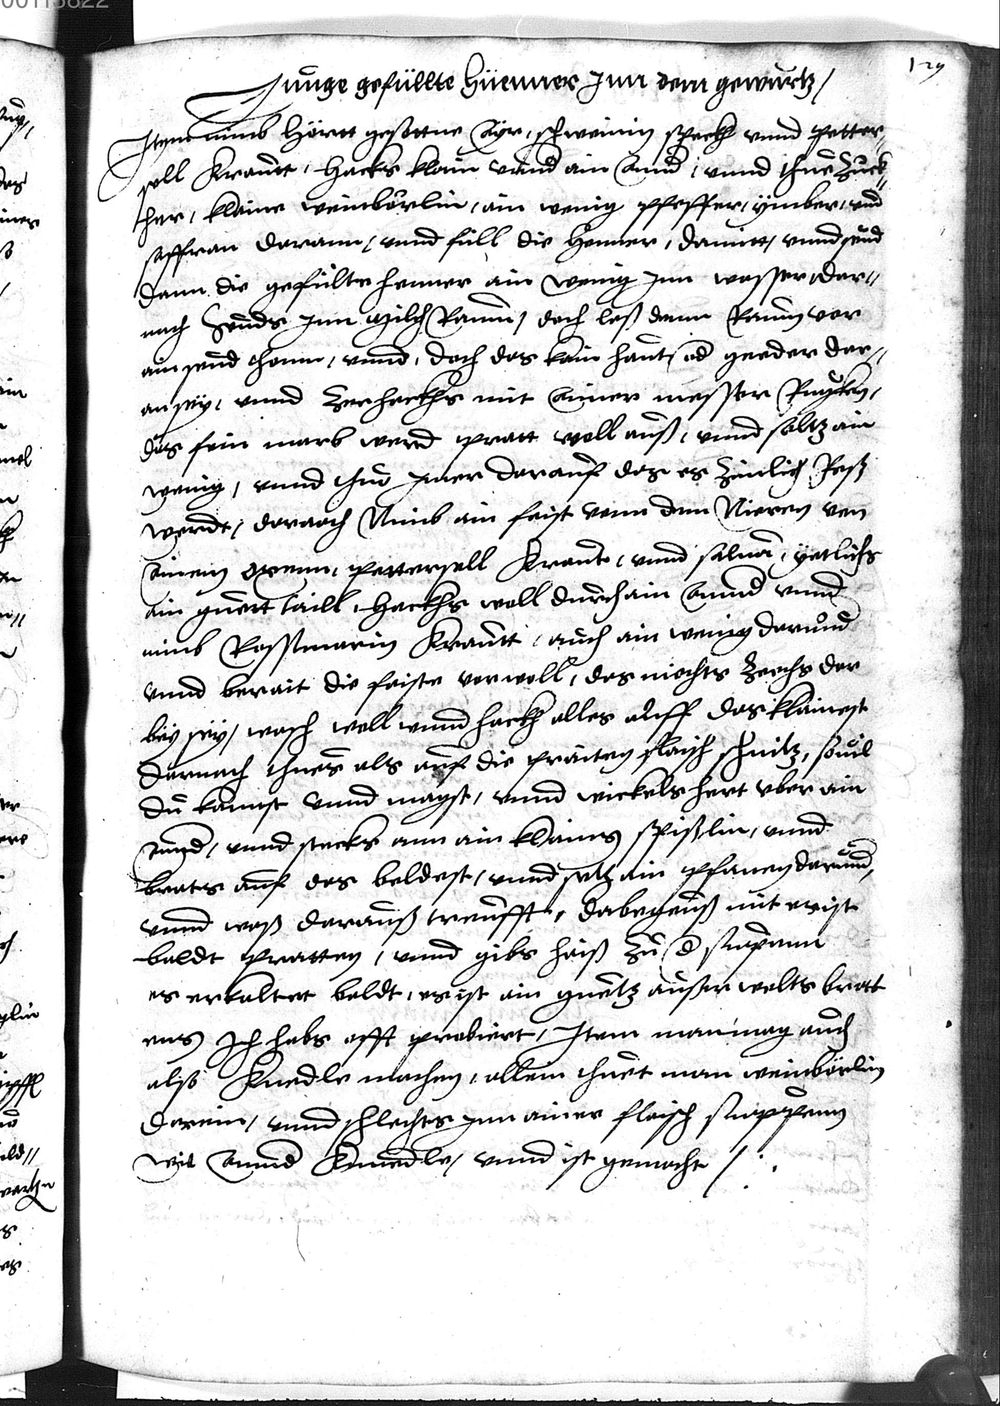 129
Junge gefüllte hüenner Jnn dem gewürtz /
Item nimb hörtt gesottne Ayr, schweinin speckh vnnd petter„
sell Kraudt, Hacks klain vnnd ain Annd, vnnd thue Zuck„
her, klaine weinbörlin, ain wenig pfeffer, ÿmber, vnd
saffran darann, vnnd füll die henner, damitt, vnnd seud
dann die gefülte henner ain wenig Jnn wasser, dar„
nach Seuds Jnn Milch Raum, doch laß denn Raum vor
ain seud thonn, vnnd, doch das kain haut od geeder dar„
an seÿ, vnnd Zerhackhs mit Ainer messer Rugken,
das fein marb werd pratt woll auß, vnnd saltz ain
wenig, vnnd thue Jmer darauf das es Zimlich Reß
werdt, darnach Nimb ain faist vonn dem Nieren von
Ainem oxenn, pettersell Kraut, vnnd salua, ÿetlichs
ain guett taill, Hackhs woll durch ain Annd vnnd
nimb Rossmarin Krautt, auch ain wenig darund
vnnd berait die faiste vor woll, das nichts Zechs dar
beÿ seÿ, wasch woll vnnd hackh alles auff das klainest
darnach thues als auf die praiten flaisch schnitz, souil
du kanst vnnd magst, vnnd wickels hert vber ain
annd, vnnd stecks ann ain klaines spißlin, vnnd
brats auf das beldest, vnnd setz ain pfanen darund,
vnnd waß darauß treufft, dabegeuß mit er ist
baldt pratten, vnnd gibs haiß Zu d suppenn
es erkaltet baldt, es ist ain guetz außer welts brat
ens Jch habs offt probiert, Item man mag auch
alsß Knedle machen, allein thuet man weinbörlin
darein, vnnd schlechts Jnn ainer flaisch suppenn
wie Annd Knnedle, vnnd ist gemacht /: